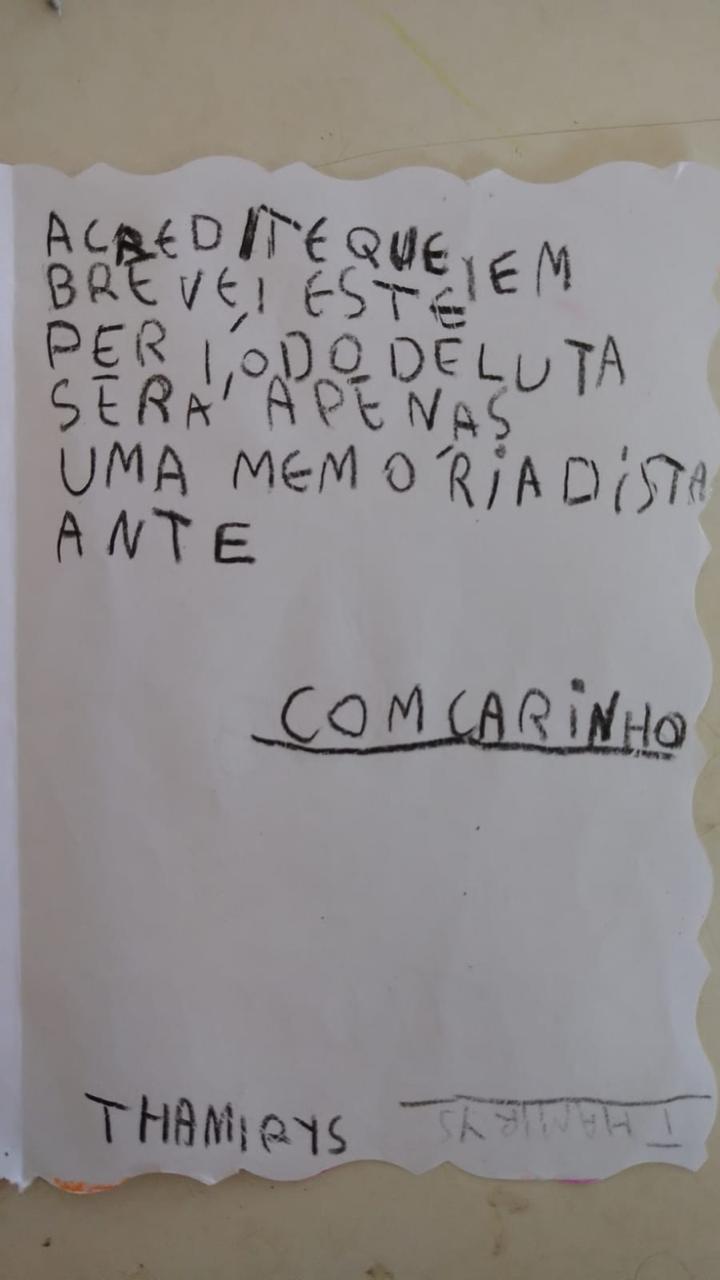 ACREDITE QUE, EM
BREVE, ESTE
PERÍODO DE LUTA
SERÁ APENAS
UMA MEMÓRIA DISTA
ANTE
COM CARINHO
THAMIRYS
THAMIRYS